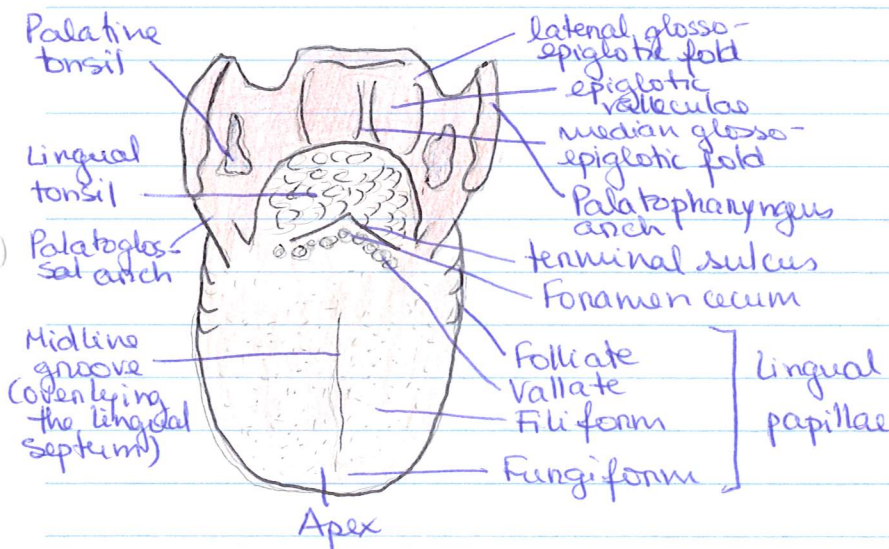 Palatine
tonsil
Lingual
tonsil
Palatoglos-
sal arch
Midline
groove
(overlying
the lingual
septum)
Apex
lateral glosso-
epiglotic fold
epiglotic
valleculae
median glosso-
epiglotic fold
Palatopharyngeus
arch
terminal sulcus
Foramen cecum
Folliate
Vallate
Filiform
Fungiform
Lingual
papillae